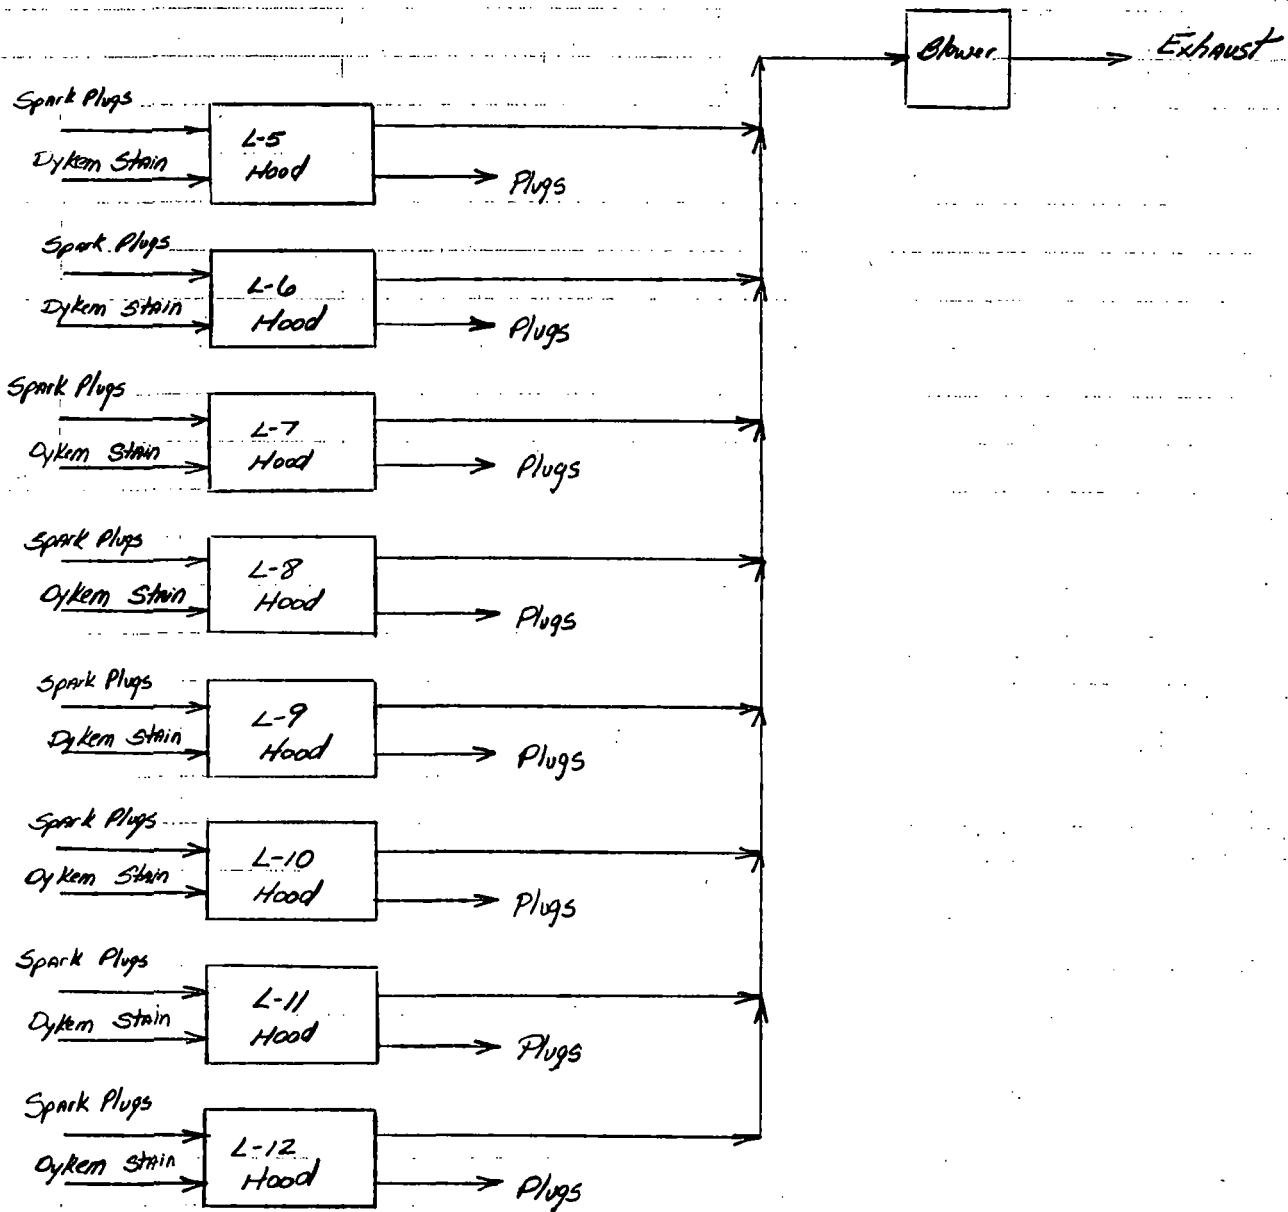 Blower
Exhaust
Spark Plugs
Dykem Stain
L-5
Hood
Plugs
Spark Plugs
Dykem Stain
L-6
Hood
Plugs
Spark Plugs
Dykem Stain
L-7
Hood
Plugs
Spark Plugs
Dykem Stain
L-8
Hood
Plugs
Spark Plugs
Dykem Stain
L-9
Hood
Plugs
Spark Plugs
Dykem Stain
L-10
Hood
Plugs
Spark Plugs
Dykem Stain
L-11
Hood
Plugs
Spark Plugs
Dykem Stain
L-12
Hood
Plugs